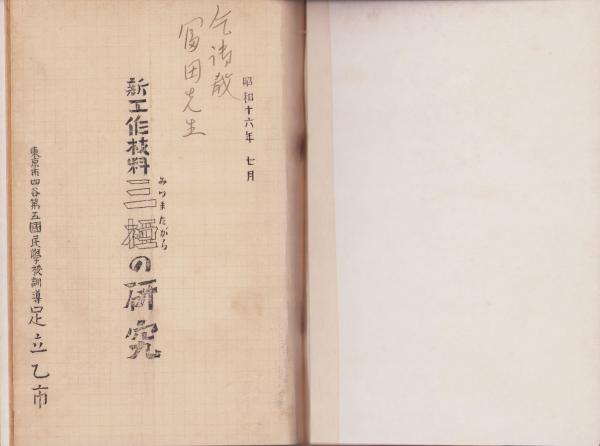 昭和十六年 七月
乞清教
冨田先生
新工作材料三椏の研究
みつまたがら
東京市四谷第五國民學校訓導 足立乙市